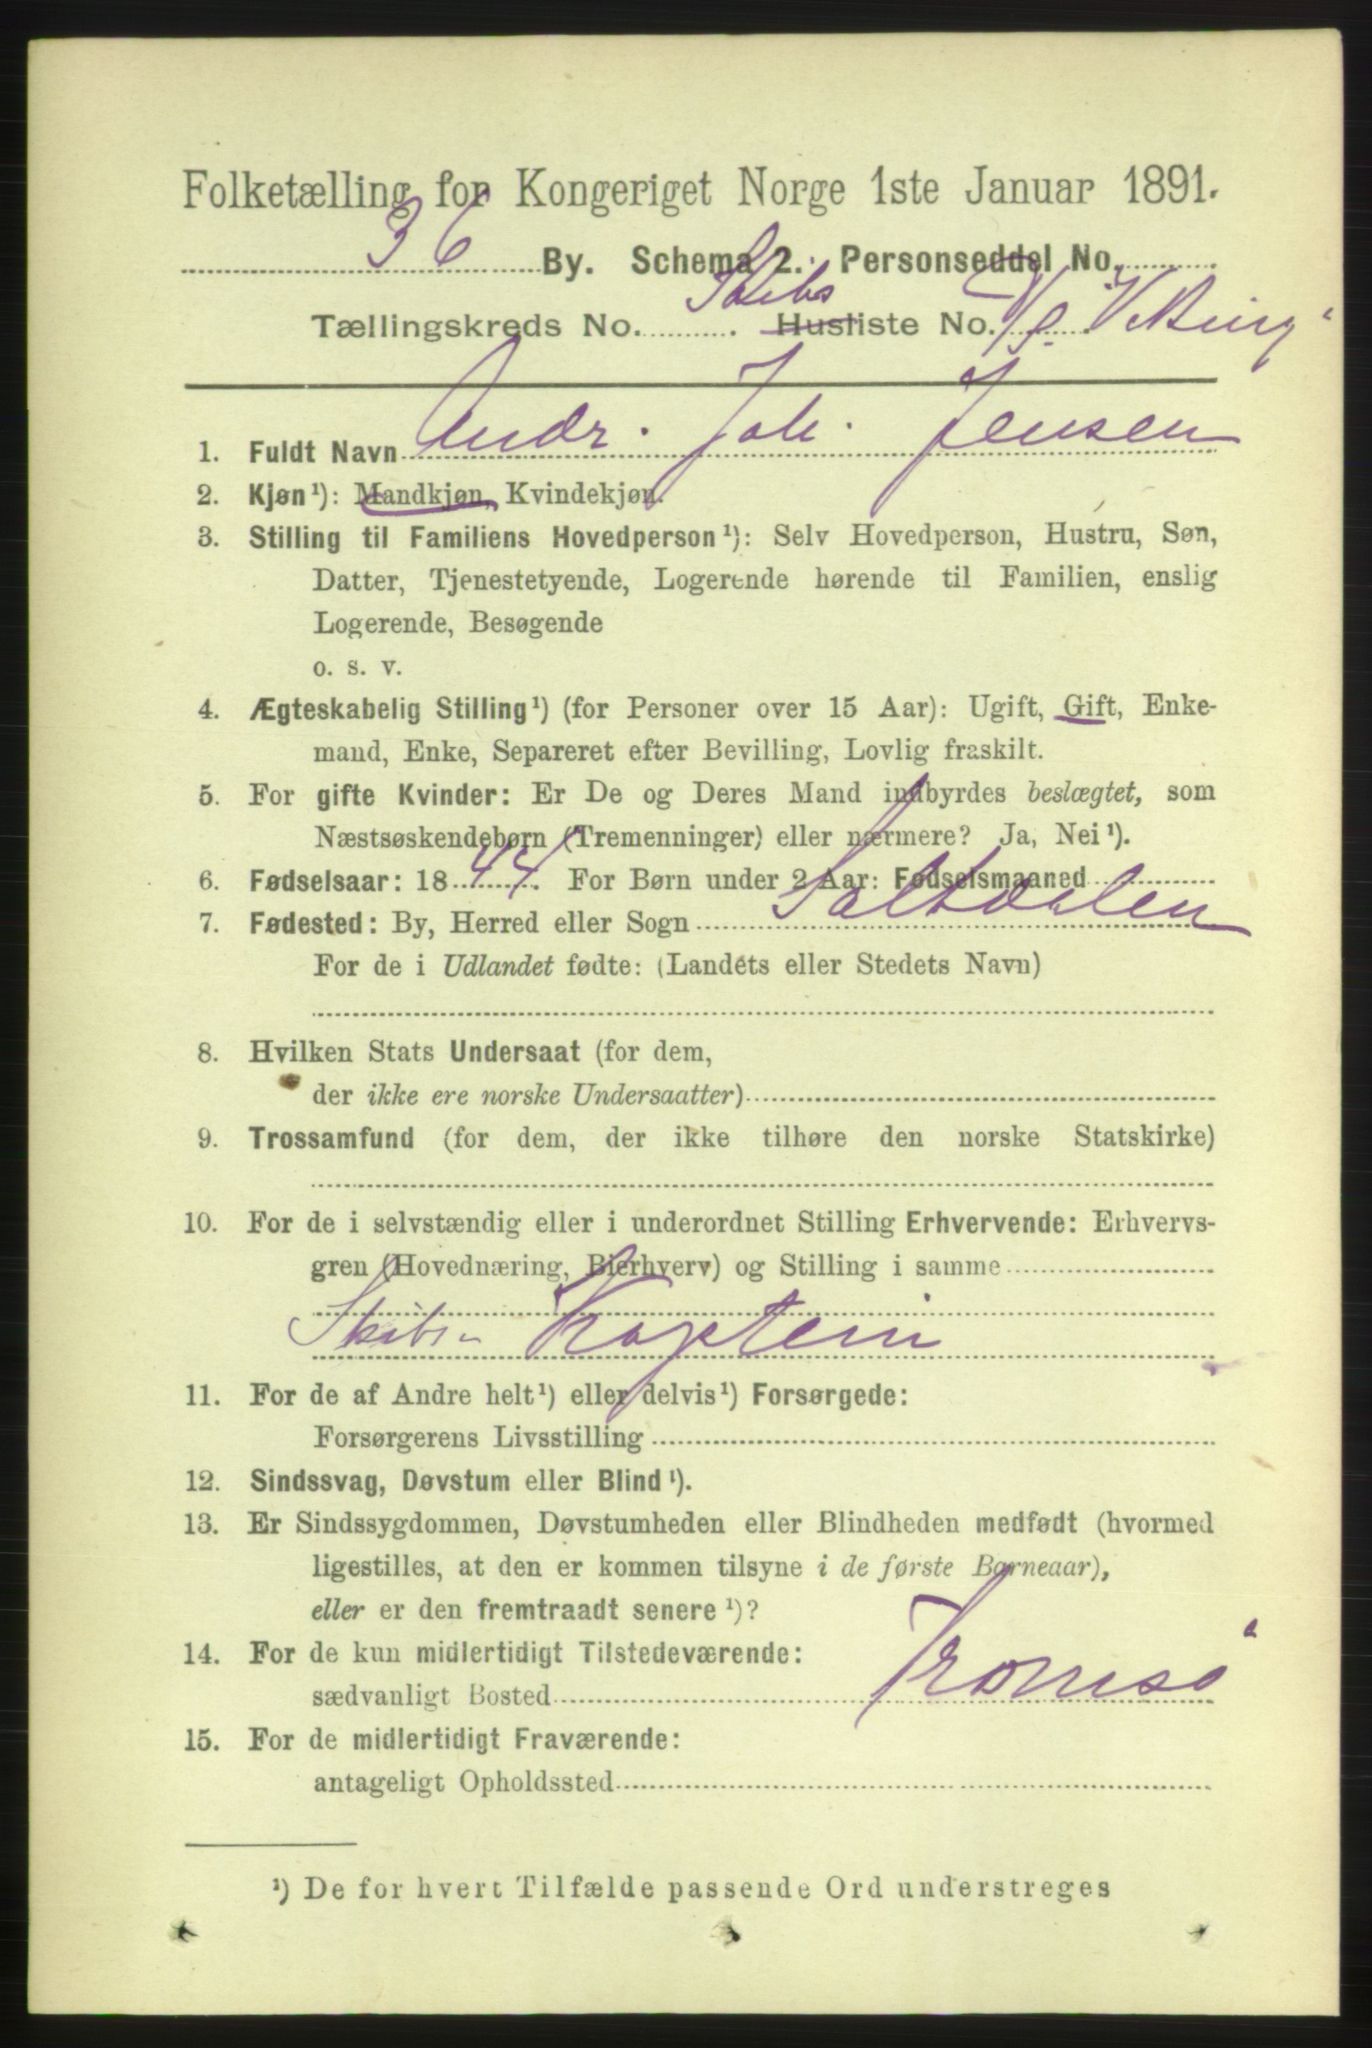 Folketælling for Kongeriget Norge 1ste Januar 1891.
36 By. Schema 2. Personseddel No.
Tællingskreds No. Skibs Husliste No.
1. Fuldt Navn Andr. Joh. Jensen
2. Kjøn¹): Mandkjøn, Kvindekjøn.
3. Stilling til Familiens Hovedperson¹): Selv Hovedperson, Hustru, Søn,
Datter, Tjenestetyende, Logerende hørende til Familien, enslig
Logerende, Besøgende
o. s. v.
4. Ægteskabelig Stilling¹) (for Personer over 15 Aar): Ugift, Gift, Enke-
mand, Enke, Separeret efter Bevilling, Lovlig fraskilt.
5. For gifte Kvinder: Er De og Deres Mand indbyrdes beslægtet, som
Næstsøskendebørn (Tremenninger) eller nærmere? Ja, Nei¹).
6. Fødselsaar: 1844. For Børn under 2 Aar: Fødselsmaaned
7. Fødested: By, Herred eller Sogn Saltdalen
For de i Udlandet fødte: (Landets eller Stedets Navn)
8. Hvilken Stats Undersaat (for dem,
der ikke ere norske Undersaatter)
9. Trossamfund (for dem, der ikke tilhøre den norske Statskirke)
10. For de i selvstændig eller i underordnet Stilling Erhvervende: Erhvervs-
gren (Hovednæring, Bierhverv) og Stilling i samme
Skibs- Kaptein
11. For de af Andre helt¹) eller delvis¹) Forsørgede:
Forsørgerens Livsstilling
12. Sindssvag, Døvstum eller Blind¹).
13. Er Sindssygdommen, Døvstumheden eller Blindheden medfødt (hvormed
ligestilles, at den er kommen tilsyne i de første Barneaar),
eller er den fremtraadt senere¹)?
14. For de kun midlertidigt Tilstedeværende:
sædvanligt Bosted Tromsø
15. For de midlertidigt Fraværende:
antageligt Opholdssted
¹) De for hvert Tilfælde passende Ord understreges